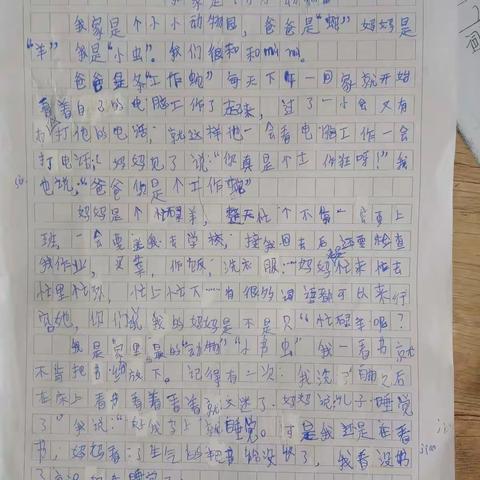 我家是个小小动物园，爸爸是"蛇"妈妈是
"羊"我是"小虫"。我们很和和
爸爸是条"工作蛇"每天下午一回家就开始
看着自己的电脑工作了起来，过了一小会又有
打打他的电话，就这样他一会看电脑工作一会
打电话，妈妈见了说："你真是个工作狂呀！"我
也说："爸爸你是个工作
妈妈是个忙碌羊，整天忙个不一会要上
班一会要送我去学校，接我回去后还要检查
我作业，买菜，做饭，洗衣服……妈妈忙来忙去
忙里忙外，忙上忙下……有很多词语都可以来形
容她，你们说我的妈妈是不是只"忙碌羊呢？
我是家里最的"动物""小书虫"我一看书就
不肯把书放下。记得有一次：我洗了之后
在床上看书看着看着就入迷了。妈妈说：儿子睡觉
了"我说："好我马上就睡觉。可是我还是在看
书，妈妈看了生气的把书给没收了，我看没书
了